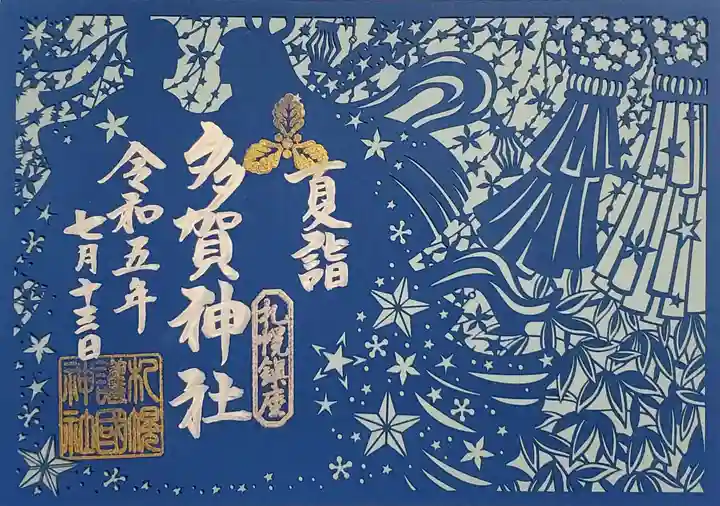 夏詣
札幌鎮座
多賀神社
令和五年
七月十三日
札幌
護國
神社